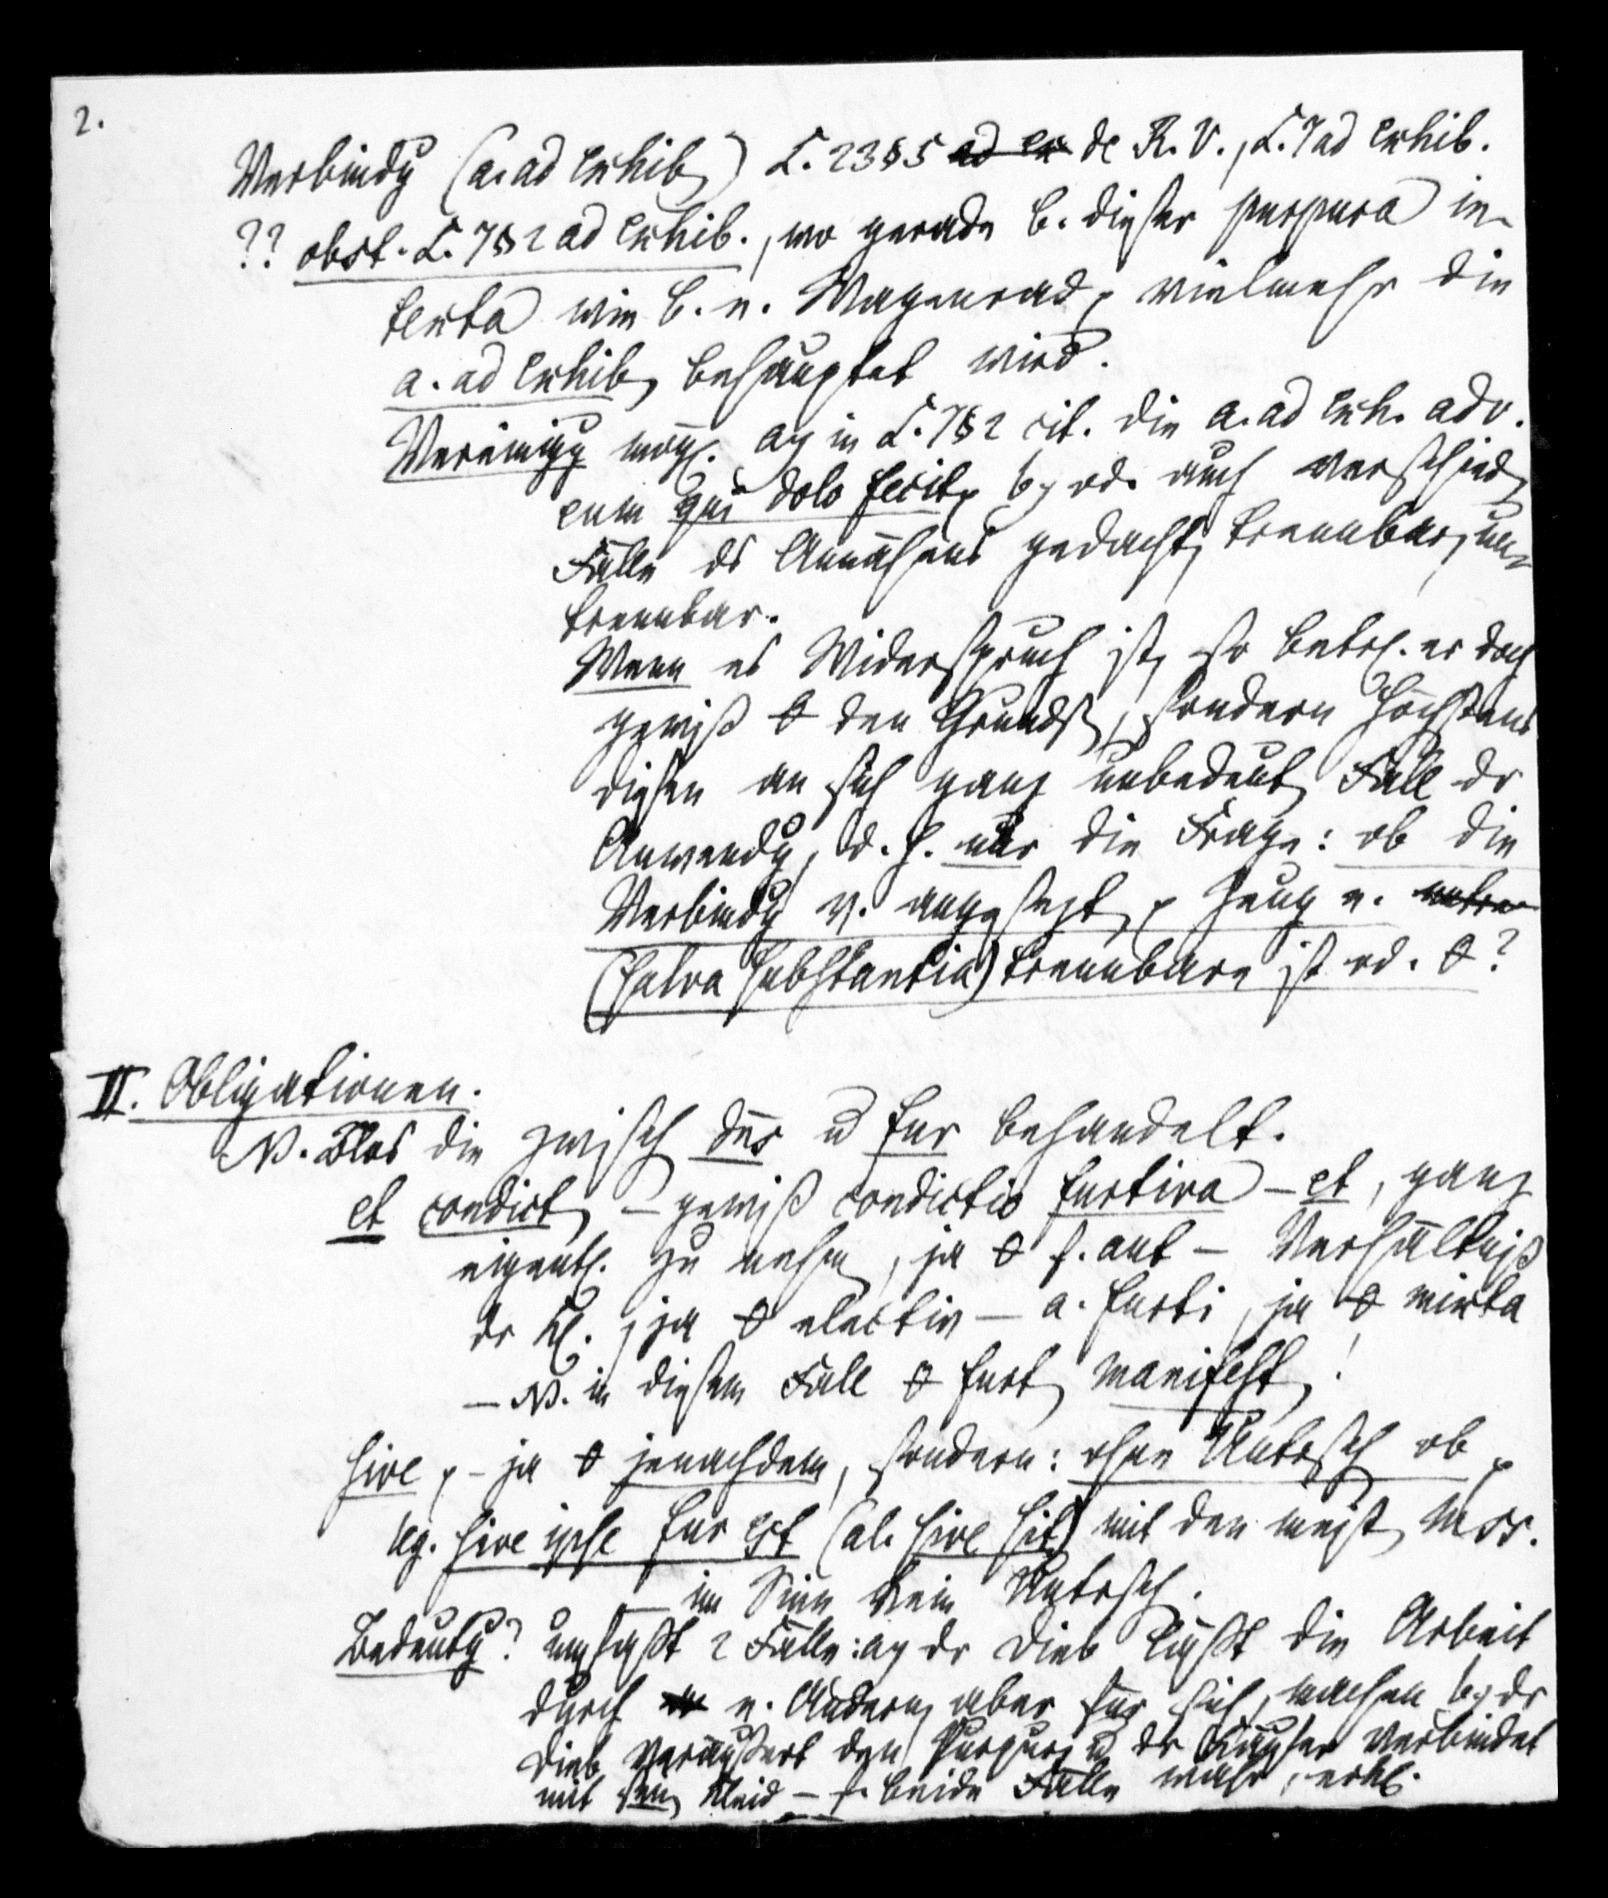 2.
Verbindg (a. ad exhib.) L. 23 § 5 ad ex de R. V., L. 7 ad exhib.
?? obst. L. 7 § 2 ad exhib., wo gerade b. dieser purpura in-
texta wie b. e. Wagenrad, vielmehr die
a. ad exhib. behauptet wird.
Vereinigg mögl. a) in L. 7 § 2 cit. die a. ad exh. adv.
eum qui dolo fecit, b) od. auch verschied.
Fälle ds Annähens gedacht, trennbar, un-
trennbar.
Wenn es Widerspruch ist, so betr. er doch
gewiß 0 den Grunds., sondern höchstens
diesen an sich ganz unbedeut. Fall dr
Anwendg, d. h. nur die Frage: ob die
Verbindg v. angesetzt. Zeug e.
(salva substantia) trennbare ist od. 0?
II. Obligationen.
N. Blos die zwisch dns u fur behandelt.
et condict. – gewiß condictio furtiva – et, ganz
eigentl. zu nehm, ja 0 f. aut – Verhältniß
dr Kl., ja 0 electiv – a. furti, ja 0 mixta
– N. in diesem Fall 0 furt. manifest.!
sive, – ja 0 jenachdem, sondern: ohne Untersch ob
leg. sive ipse fur est (al. sive sit) mit den meist. Mss.
im Sinn kein Untersch.
Bedeutg? umfaßt 2 Fälle: a) dr Dieb läßt die Arbeit
durch e. Andern aber für sich, machen b) dr
Dieb veräußert den Purpur, u dr Käufer verbindet
mit sm Kleid – f. beide Fälle wahr, erkl.